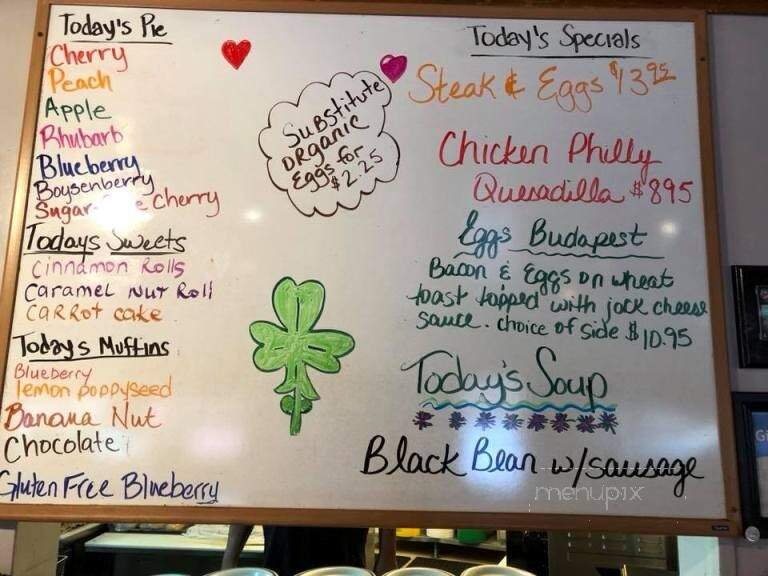 Today's Pie
Cherry
Peach
Apple
Rhubarb
Blueberry
Boysenberry
Sugar Cherry
Todays Sweets
Cinnamon Rolls
Caramel Nut Roll
Carrot cake
Today's Muffins
Blueberry
lemon poppyseed
Banana Nut
Chocolate
Gluten Free Blueberry
Substitute
organic
Eggs for
$2.25
Today's Specials
Steak & Eggs $13.95
Chicken Philly
Quesadilla $895
Eggs Budapest
Bacon & Eggs on wheat
toast topped with jack cheese
sauce. choice of side $10.95
Today's Soup
Black Bean w/sausage
menupix